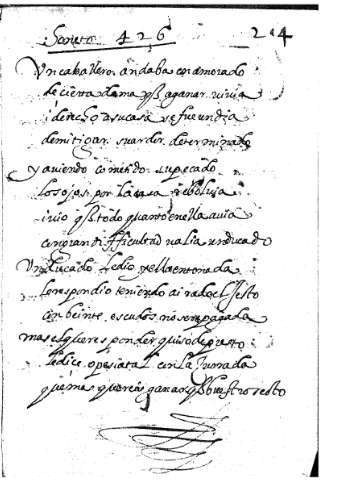 Soneto 426 214
Un caballero andaba enamorado
de cierta dama q̃ a ganar vivia
i derecho a su casa se fue un dia
de mitigar su arder determinado
y aviendo cometido su pecado
los ojos por la casa rebolvia
i vio q̃ todo quanto en ella avia
con gran difficultad valia un ducado
Un ducado le dio y ella entonada
le respondio teniendo airado el gesto
con beinte escudos no sere pagada
mas el q̃ responder quiso de presto
le dice
que mas quereis ganar q̃ buestro resto